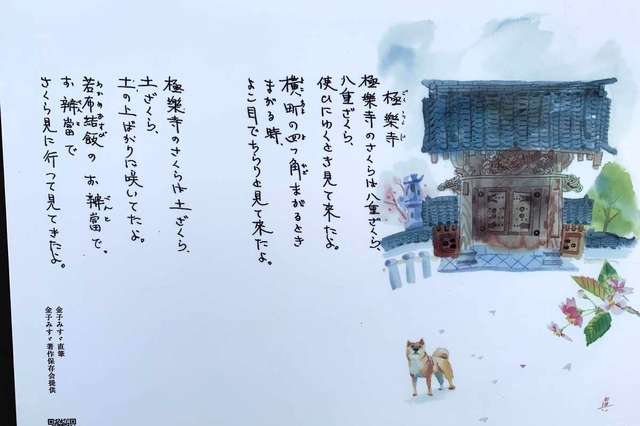 極樂寺
極樂寺のさくらは八重ざくら、
八重ざくら、
使ひにゆくとき見て来たよ。
横町の四つ角まがるとき
まがる時、
よこ目でちらりと見て来たよ。
極樂寺のさくらは土ざくら、
土ざくら、
土の上ばかりに咲いてたよ。
若布結飯のお辨當で、
お辨當で
さくら見に行って見てきたよ。
金子みすゞ直筆
金子みすゞ著作保存会提供